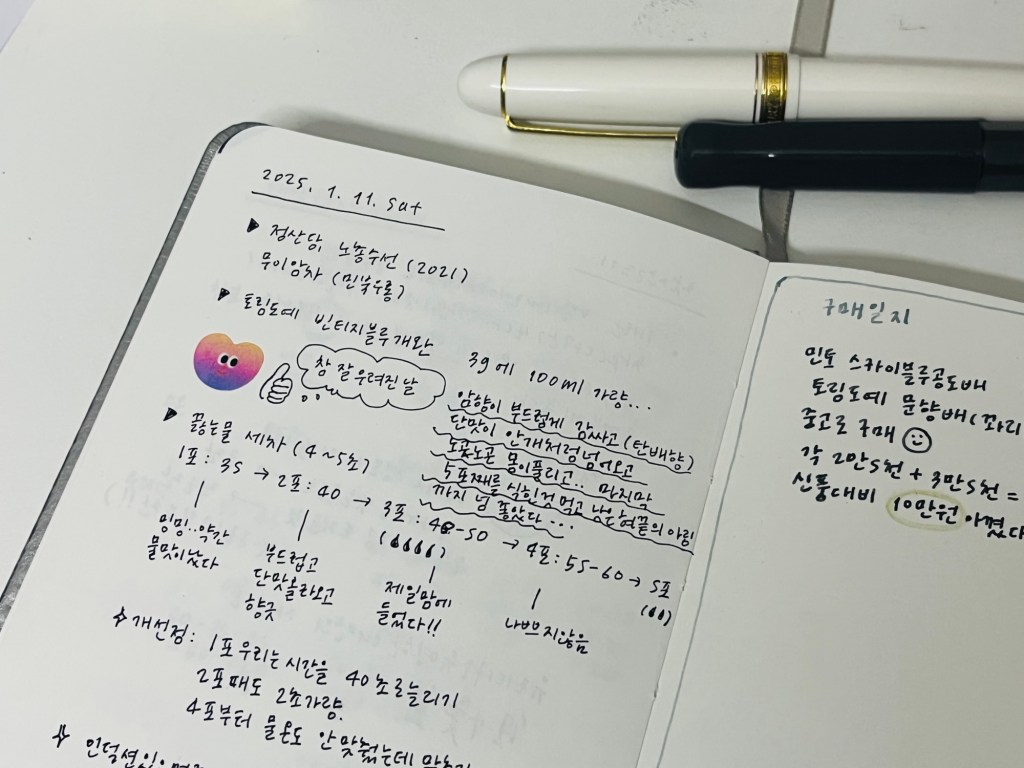 2025. 1. 11. sat
▶ 정산당, 노총수선 (2021)
무이암차 (민북우롱)
▶ 토림도예 빈티지블루개완
참 잘 우려진 날
3g에 100ml 가량...
암향이 부드럽게 감싸고 (탄배향)
단맛이 안개처럼 넘어오고
노곤노곤 몽이풀리고.. 마지막
5포째를 식힌것 먹고 남은 혀끝의 아림
까지 넘 좋았다...
▶ 끓는물 세차 (4~5초)
1포: 35 → 2포: 40 → 3포: 48-50 → 4포: 55-60 → 5포
밍밍..약간
물맛이났다
부드럽고
단맛올라오고
향긋
제일맘에
들었다!!
나쁘지않음
개선점: 1포 우리는 시간을 40초로 늘리기
2포때도 2초가량.
4포부터 물온도 안 맞췄는데
인덕션
구매일지
민토 스카이블루공도배
토림도예 문향배 (꽈리
중고로 구매
각 2만5천 + 3만5천 =
신품대비 10만원 아꼈다